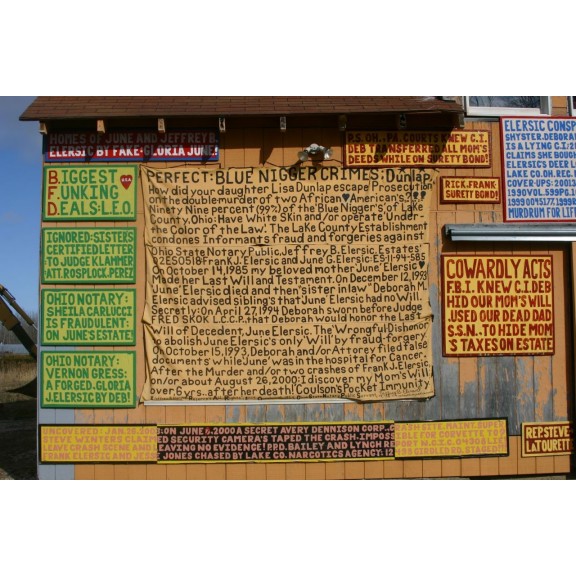 HOMES OF JUNE AND JEFFREY B.
ELERSIC BY FAKE: GLORIA JUNE!
BIGGEST
F.UNKING
D.EALS:L.E.O.
IGNORED:SISTERS
CERTIFIED LETTER
TO JUDGE KLAMMER
ATT. ROSPLOCK, PEREZ
OHIO NOTARY:
SHEILA CARLUCCI
IS FRAUDULENT:
ON JUNE'S ESTATE
OHIO NOTARY:
VERNON GRESS:
A FORGED.GLORIA
J.ELERSIC BY DEB!
PERFECT: BLUE NIGGER CRIMES: Dunlap.
How did your daughter Lisa Dunlap escape Prosecution
on the double murder of two African American's???
Ninety Nine percent (99%) of the Blue Nigger's of Lake
County, Ohio: Have White Skin and/or operate Under
the Color of the Law. The Lake County Establishment
condones Informants fraud and forgeries against
Ohio State Notary Public, Jeffrey B. Elersic. Estates'
Frank J. Elersic and June G. Elersic: ES 11-94-585
On October 14, 1985 my beloved mother June Elersic
Made her Last Will and Testament. On December 12, 1993
June Elersic died and then "sister in law" Deborah M.
Elersic advised sibling's that June Elersic had no Will.
Secretly: On April 27, 1994 Deborah sworn before Judge
FRED SKOK L.C.C.P. that Deborah would honor the Last
Will of Decedent, June Elersic. The Wrongful Dishonor
to abolish June Elersic's only Will by fraud-forgery.
On October 15, 1993, Deborah and/or Attorney filed false
documents while June was in the hospital for Cancer.
After the Murder and/or two crashes of Frank J. Elersic
on/or about August 26, 2000: I discover my Mom's Will
over 6 yrs. after her death! Coulsons Pocket Immunity
P.S. OH., PA. COURTS KNEW C.I.
DEB TRANSFERRED ALL MOM'S
DEEDS WHILE ON SURETY BOND!
RICK.FRANK:
SURETY BOND!
ELERSIC CONSP
SHYSTER.DEBORA
IS A LYING C.I:
CLAIMS SHE BOUG
ELERSIC'S DEER L
LAKE CO.OH. REC.
COVER-UPS:
MURDRUM FOR LIF
COWARDLY ACTS
F.B.I. KNEW C.I.DEB
HID OUR MOM'S WILL
.USED OUR DEAD DAD
S.S.N.. TO HIDE MOM
'S TAXES ON ESTATE
STEVE WINTERS CLAIM
LEAVE CRASH SCENE AND
FRANK ELERSIC AND
:ON JUNE 6.2000 A SECRET AVERY DENNISON CORP.
ED SECURITY CAMERA'S TAPED THE CRASH.IMPOSS
LEAVING NO EVIDENCE! P.RD.BAILEY AND LYNCH RE
JONES CHASED BY LAKE CO. NARCOTICS AGENCY: 12
IBLE FOR CORVETTE TO
REP.STEVE
LATOURETT